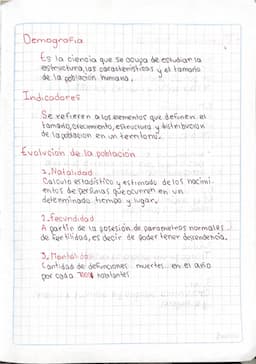 Demografia
Es la ciencia que se ocupa de estudiar la
estructura, las caracteristicas y el tamaño
de la población humana.
Indicadores
Se refieren a los elementos que definen el
tamaño, crecimiento, estructura y distribucion
de la poblacion en un territorio.
Evolucion de la población
1. Natalidad
Calculo estadistico y estimado de los nacimi-
entos de personas que ocurren en un
determinado tiempo y lugar.
2. Fecundidad
A partir de la posesión de parametros normales
de fertilidad, es decir de poder tener descendencia.
3. Mortalidad
Cantidad de defunciones muertes en el año
por cada habitantes